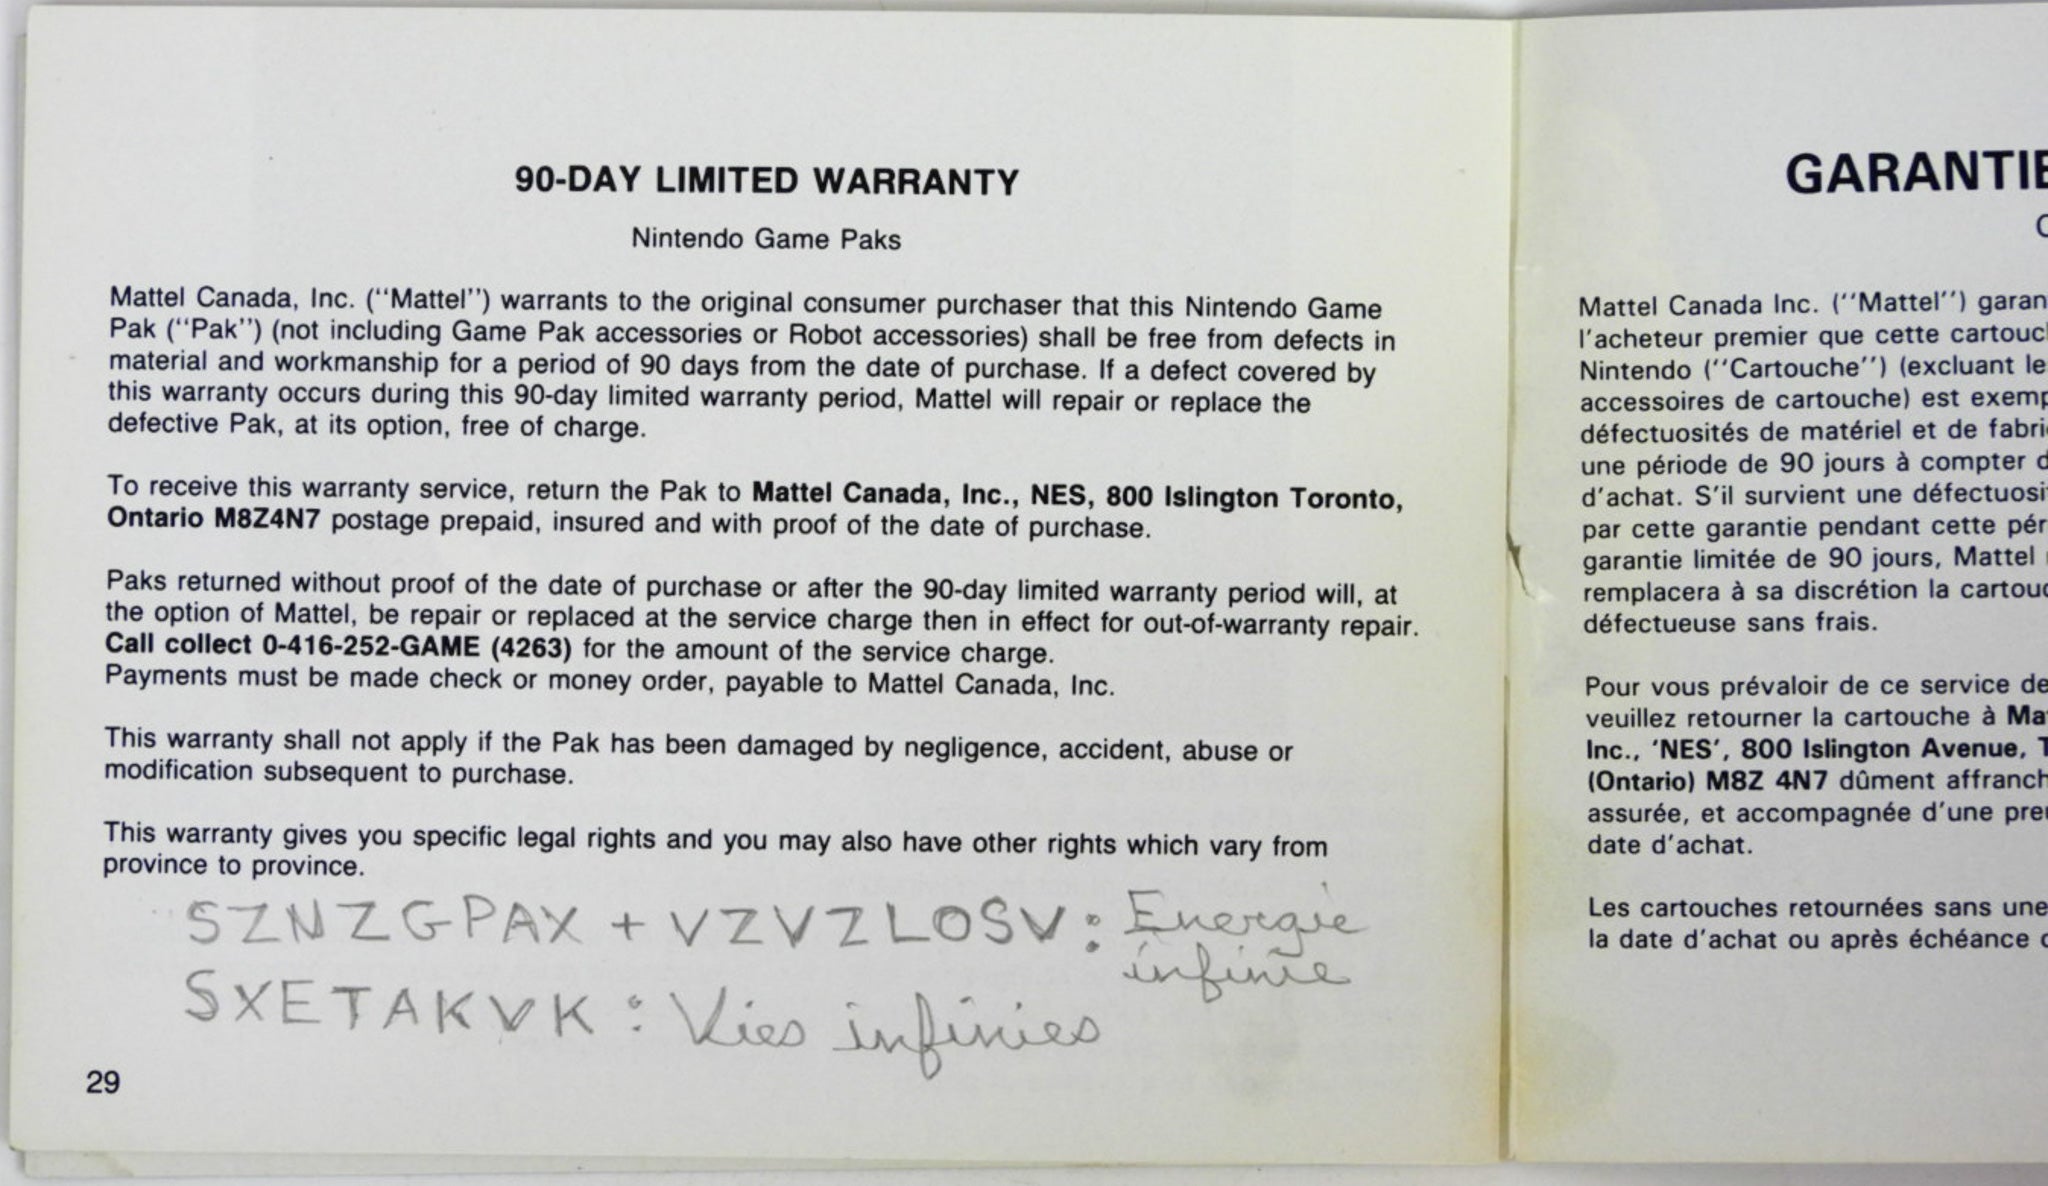 90-DAY LIMITED WARRANTY
Nintendo Game Paks
Mattel Canada, Inc. (“Mattel”) warrants to the original consumer purchaser that this Nintendo Game
Pak (“Pak”) (not including Game Pak accessories or Robot accessories) shall be free from defects in
material and workmanship for a period of 90 days from the date of purchase. If a defect covered by
this warranty occurs during this 90-day limited warranty period, Mattel will repair or replace the
defective Pak, at its option, free of charge.
To receive this warranty service, return the Pak to Mattel Canada, Inc., NES, 800 Islington Toronto,
Ontario M8Z4N7 postage prepaid, insured and with proof of the date of purchase.
Paks returned without proof of the date of purchase or after the 90-day limited warranty period will, at
the option of Mattel, be repair or replaced at the service charge then in effect for out-of-warranty repair.
Call collect 0-416-252-GAME (4263) for the amount of the service charge.
Payments must be made check or money order, payable to Mattel Canada, Inc.
This warranty shall not apply if the Pak has been damaged by negligence, accident, abuse or
modification subsequent to purchase.
This warranty gives you specific legal rights and you may also have other rights which vary from
province to province.
SZNZGPAX + VZVZLOSV : Energie
infinie
SXETAKVK : Vies infinies
29
GARANTIE
Mattel Canada Inc. (“Mattel”)
l’acheteur premier que cette
Nintendo (“Cartouche”) (excluant
accessoires de cartouche) est
défectuosités de matériel et de
une période de 90 jours à compter
d’achat. S’il survient une
par cette garantie pendant cette
garantie limitée de 90 jours, Mattel
remplacera à sa discrétion la
défectueuse sans frais.
Pour vous prévaloir de ce service de
veuillez retourner la cartouche à
Inc., ‘NES’, 800 Islington Avenue,
(Ontario) M8Z 4N7 dûment
assurée, et accompagnée d’une
date d’achat.
Les cartouches retournées sans une
la date d’achat ou après échéance